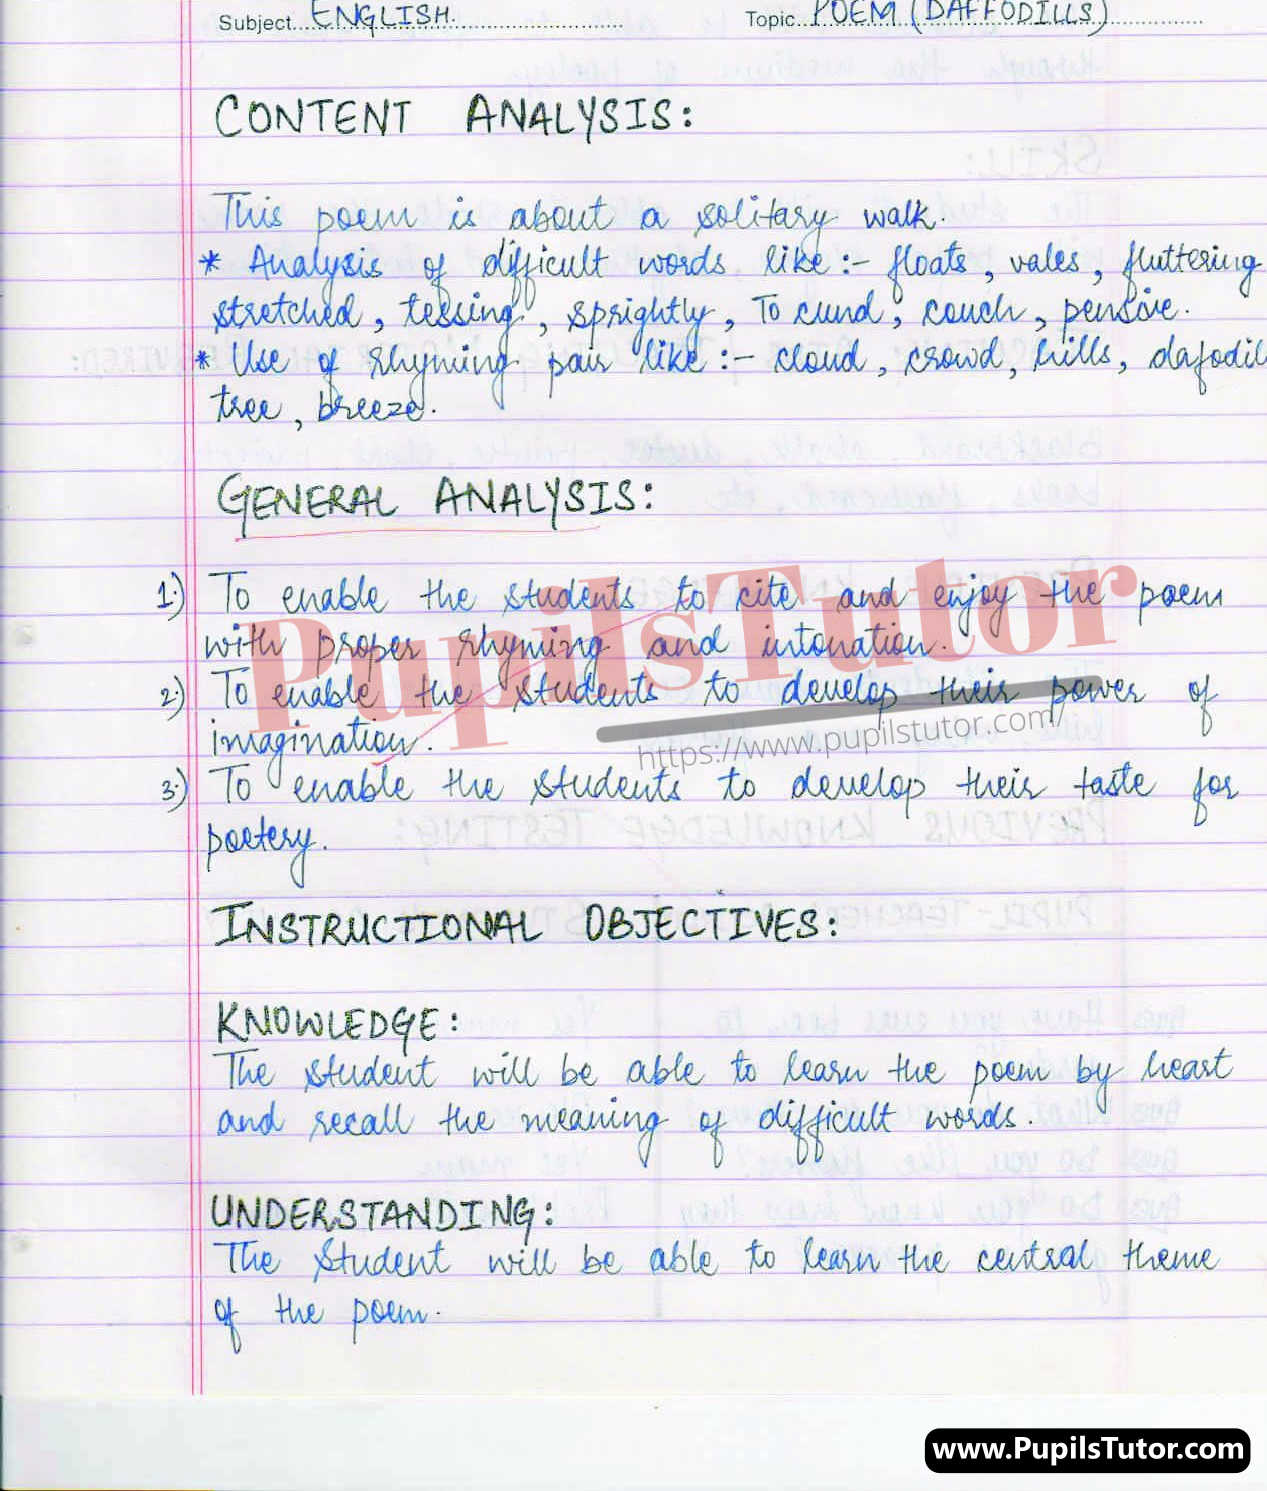 Subject ENGLISH. Topic POEM (DAFFODILLS)
CONTENT ANALYSIS:
This poem is about a solitary walk.
* Analysis of difficult words like :- floats, vales, fluttering
stretched, tessing, sprightly, To cund, couch, pensive.
* Use of rhyming pair like :- cloud, crowd, hills, dafodil
tree, breeze.
GENERAL ANALYSIS:
1.) To enable the students to cite and enjoy the poem
with proper rhyming and intonation.
2.) To enable the students to develop their power of
imagination.
3.) To enable the students to develop their taste for
poetery.
INSTRUCTIONAL OBJECTIVES:
KNOWLEDGE:
The student will be able to learn the poem by heart
and recall the meaning of difficult words.
UNDERSTANDING:
The student will be able to learn the central theme
of the poem.
PupilsTutor
https://www.pupilstutor.com/
www.PupilsTutor.com